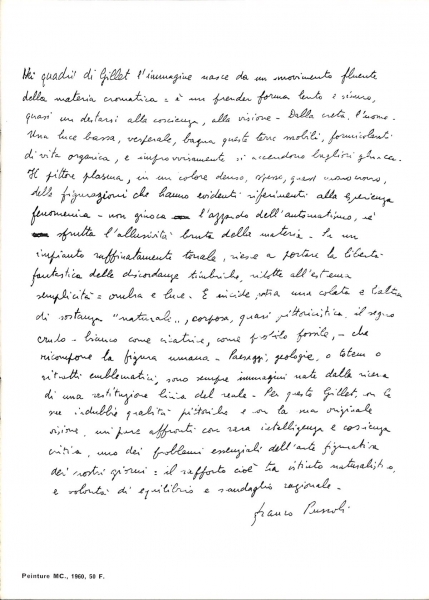 Nei quadri di Gillet l'immagine nasce da un movimento fluente
della materia cromatica: è un prender forma lento e sicuro,
quasi un destarsi alla coscienza, alla visione - Dalla creta, l'uomo.
Una luce bassa, vesperale, bagna queste terre mobili, formicolanti
di vita organica, e improvvisamente si accendono bagliori ghiacci.
Il pittore plasma, in un colore denso, spesso, quasi
delle figurazioni che hanno evidenti riferimenti alla esperienza
fenomenica - non gioca l'azzardo dell'automatismo, nè
sfrutta l'allusività bruta della materia - In un
impianto raffinatamente tonale, riesce a portare la libertà
fantastica delle discordanze timbriche, ridotte all'estrema
semplicità: ombra e luce. E incide, tra una colata e l'altra
di sostanza "naturale", corposa, quasi il segno
crudo - bianco come cicatrice, come fossile, - che
ricompone la figura umana - Paesaggi, geologie, o totem o
ritratti emblematici, sono sempre immagini nate dalla ricerca
di una restituzione lirica del reale. Per questo Gillet, con le
sue indubbie qualità pittoriche e con la sua originale
visione, mi pare affronti con rara intelligenza e coscienza
critica, uno dei problemi essenziali dell'arte figurativa
dei nostri giorni: il rapporto cioè tra istinto naturalistico,
e volontà di equilibrio e scandaglio razionale -
Franco Russoli
Peinture MC., 1960, 50 F.